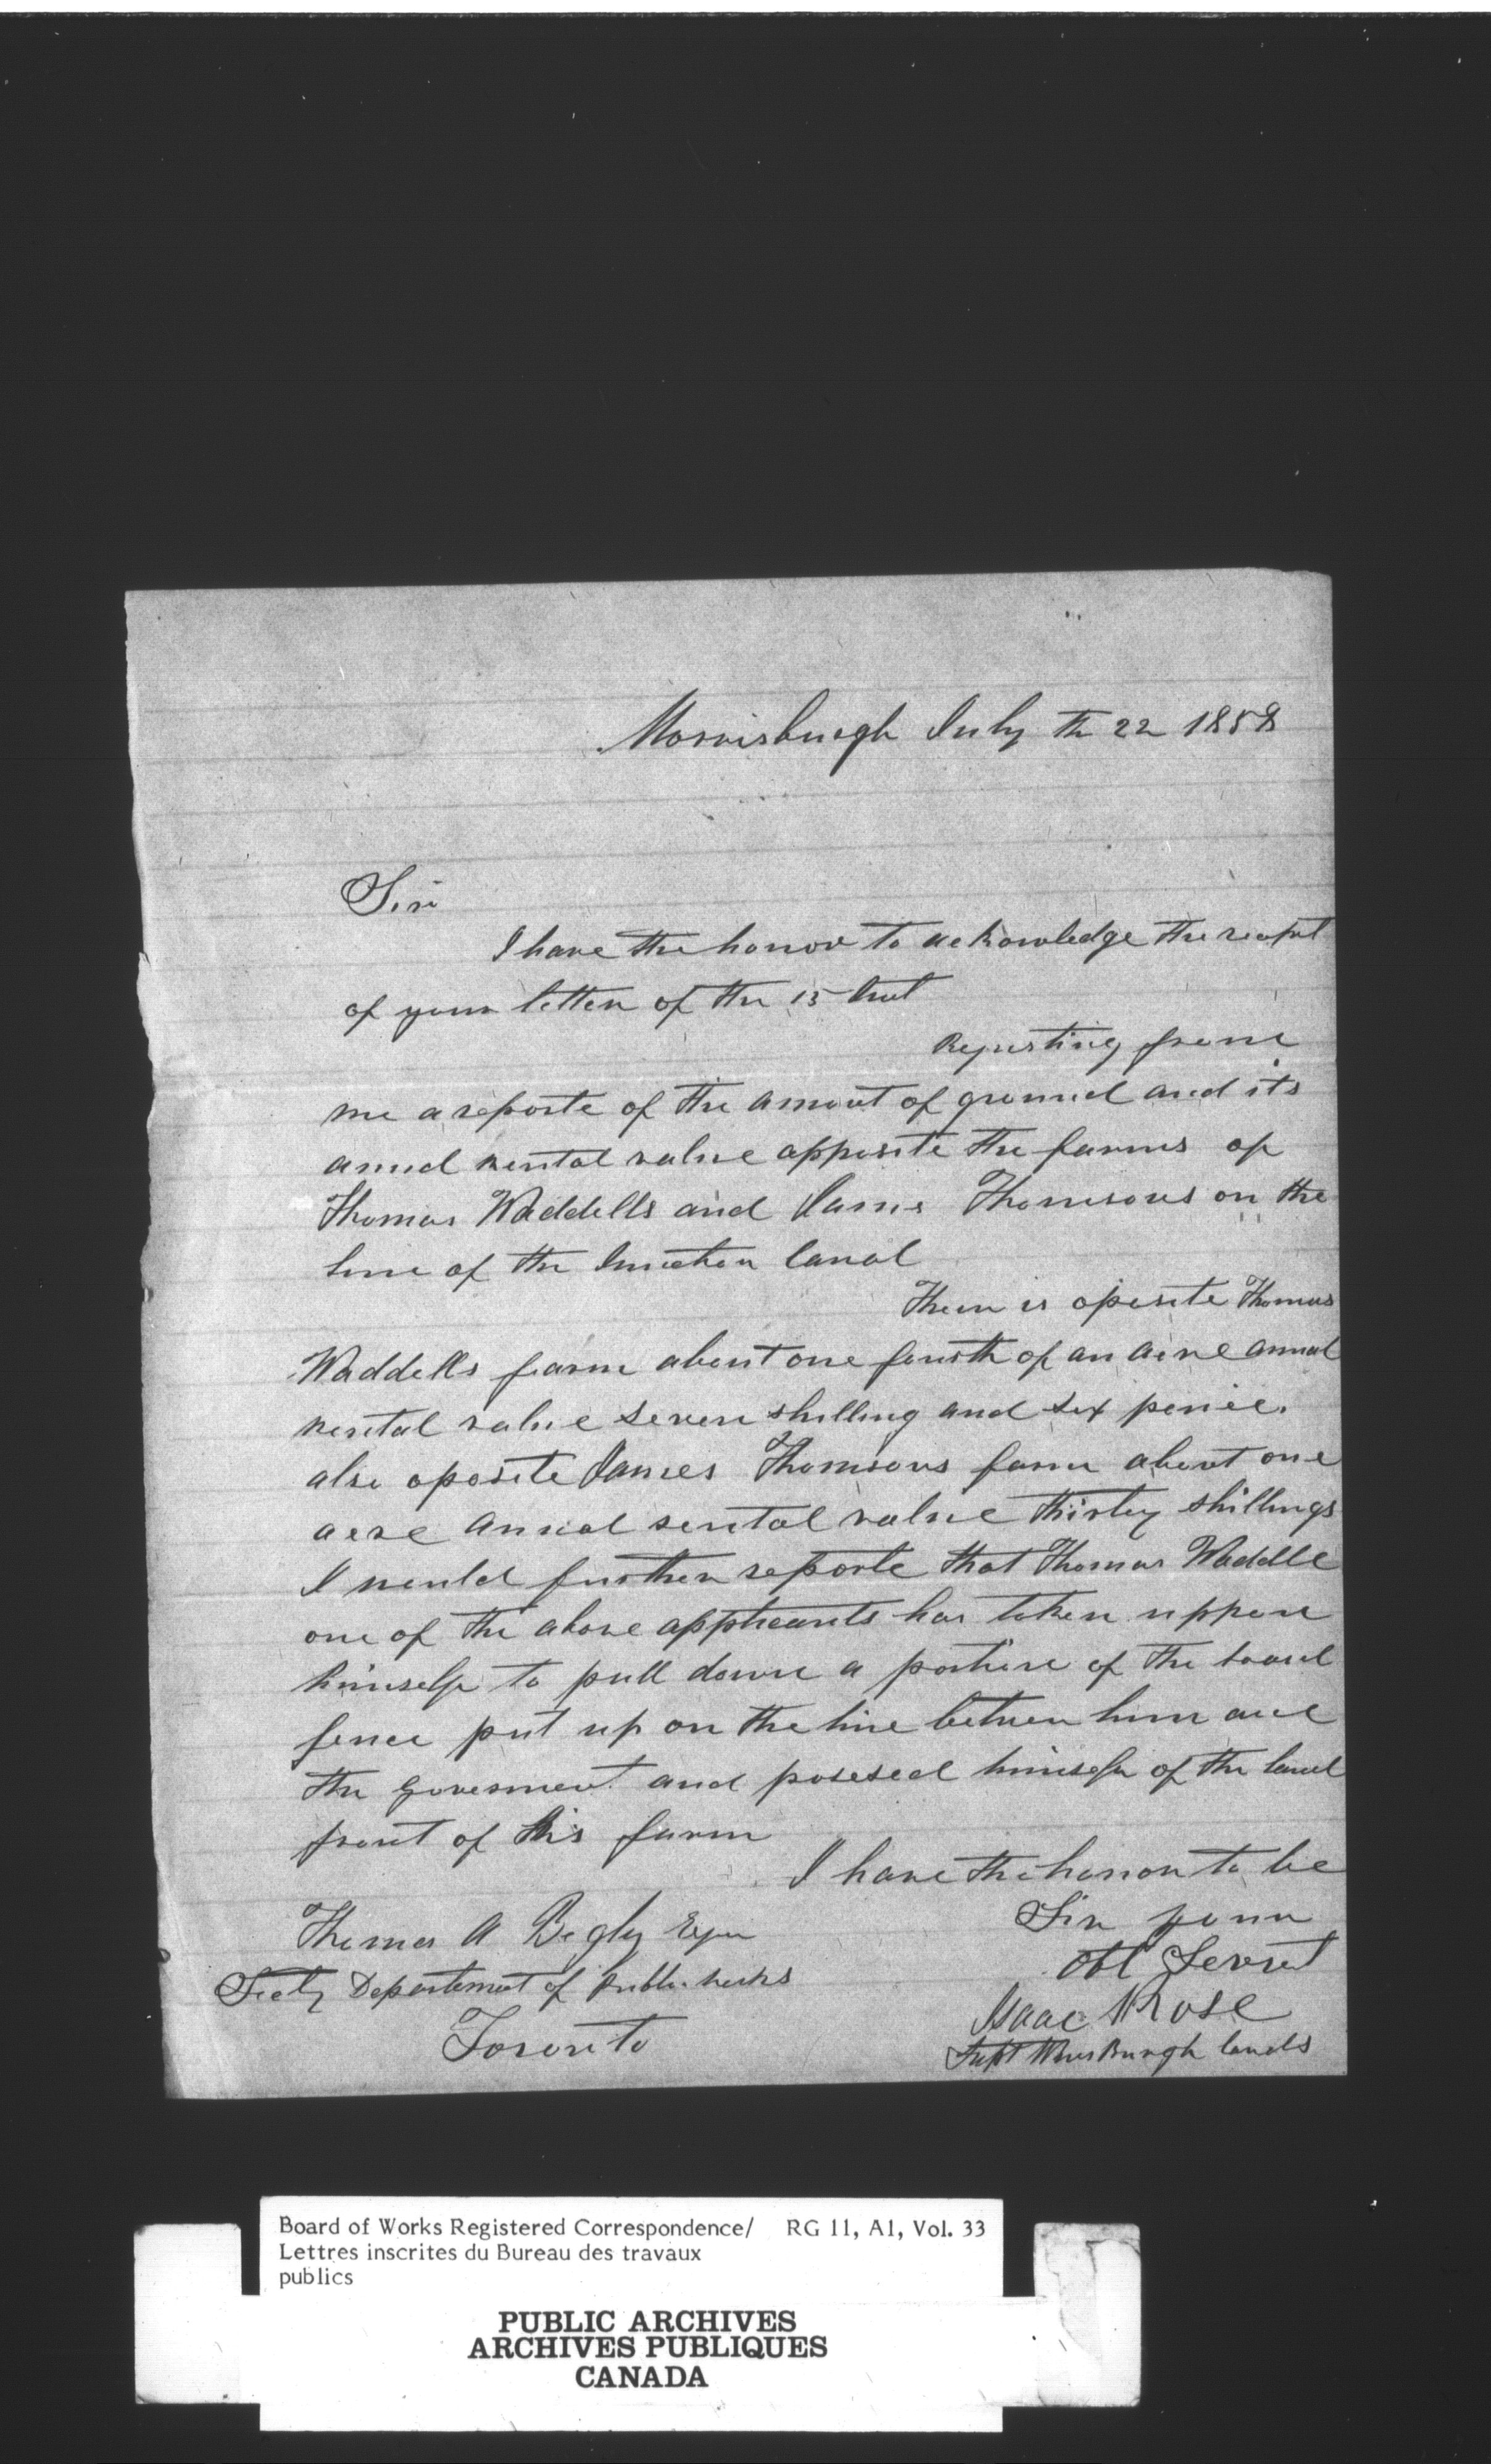 Morrisburgh July th 22 1858
Sir
I have the honor to acknowledge the recept
of your letter of the 15 Inst
Requesting frome
me a reporte of the amout of ground and its
annul rental value opposite the farms of
Thomas Waddells and James Thomsons on the
line of the Junction Canal
Their is oposite Thomas
Waddells farm about one fourth of an acre annual
rental value seven shilling and six pence.
also oposite James Thomsons farm about one
acre annual rental value thirty shillings
I would further reporte that Thomas Waddell
one of the above applicants has taken uppon
himself to pull down a portion of the board
fence put up on the line between him and
the Goverment and posesed himself of the land
front of his farm
I have the honor to be
Sir your
Obt Servnt
Isaac N Rose
Supt Wmsburgh Canals
Thomas A Begly Esqr
Secty Departement of Public Works
Toronto
Board of Works Registered Correspondence/ RG 11, A1, Vol. 33
Lettres inscrites du Bureau des travaux
publics
PUBLIC ARCHIVES
ARCHIVES PUBLIQUES
CANADA